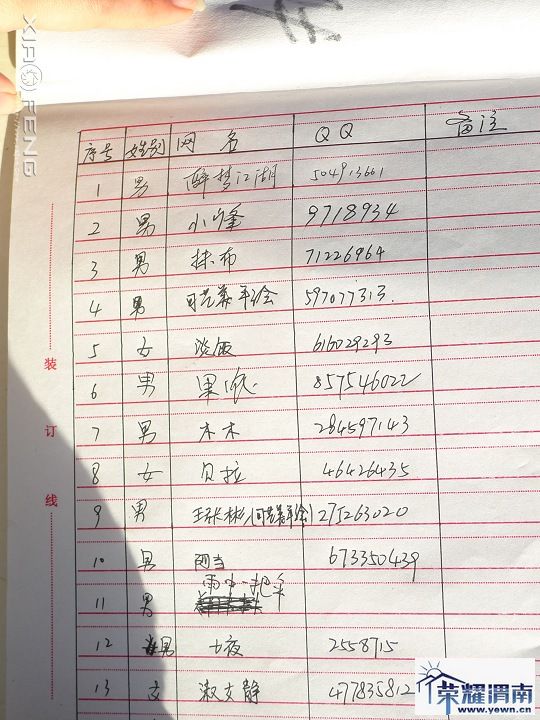 XIAO FENG
序号 姓别 网名 QQ 备注
1 男 醉梦江湖 504913661
2 男 小峰 9718934
3 男 抹布 71226964
4 男 597077313
5 女 616029293
6 男 果 857546022
7 男 木木 284597143
8 女 贝拉 46426435
9 男 275263020
10 男 阿当 673350439
11 男
12 男 七夜 2558715
13 女 淑女静 477835812
装
订
线
荣耀渭南
www.yewn.cn